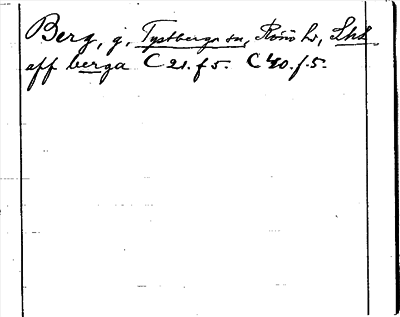 Berg, g, Tystberga sn, Rönö hd, Sthd
aff berga C 21. f 5. C 40. f. 5.